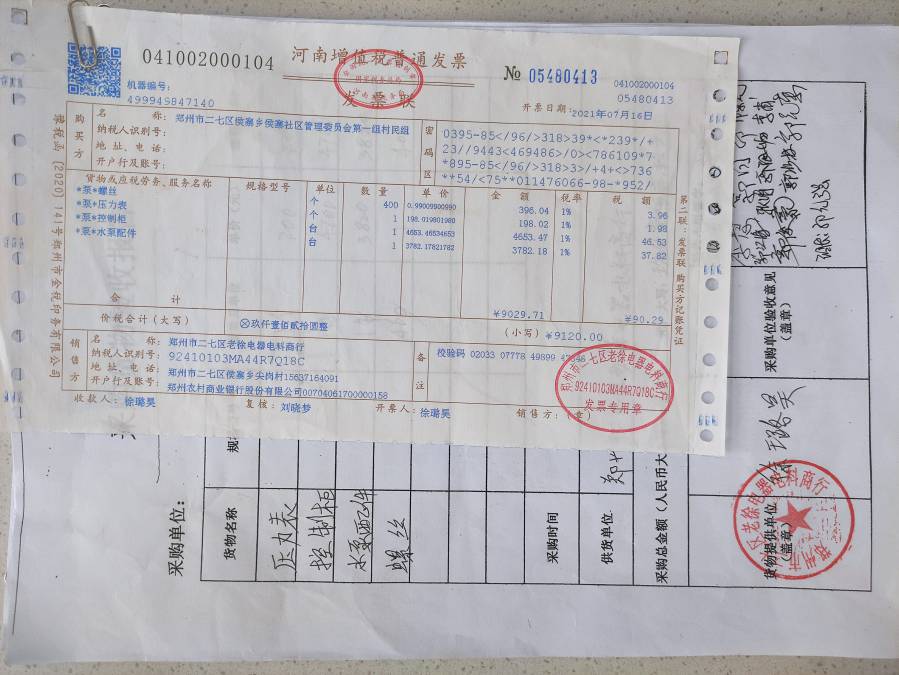 041002000104
河南增值税普通发票
发票联
国家税务总局
№ 05480413
041002000104
05480413
机器编号:
499949847140
开票日期: 2021年07月16日
购买方
名 称: 郑州市二七区侯寨乡侯寨社区管理委员会第一组村民组
纳税人识别号:
地 址、电 话:
开户行及账号:
密码区
0395-85</96/>318>39*<*239*/+
23//9443<469486>/0<>786109*7
*895-85</96/>318>3>/+4+<>736
**54/<75**011476066-98-*952/
货物或应税劳务、服务名称 规格型号 单位 数 量 单 价 金 额 税率 税 额
*泵*螺丝 个 400 0.99009900990 396.04 1% 3.96
*泵*压力表 个 1 198.019801980 198.02 1% 1.98
*泵*控制柜 台 1 4653.46534653 4653.47 1% 46.53
*泵*水泵配件 台 1 3782.17821782 3782.18 1% 37.82
合 计 ¥9029.71 ¥90.29
价税合计(大写) ⊗玖仟壹佰贰拾圆整 (小写) ¥9120.00
销售方
名 称: 郑州市二七区老徐电器电料商行
纳税人识别号: 92410103MA44R7Q18C
地 址、电 话: 郑州市二七区侯寨乡尖岗村15637164091
开户行及账号: 郑州农村商业银行股份有限公司00704061700000158
备注
校验码 02033 07778 49899
收款人: 徐璐昊 复核: 刘晓梦 开票人: 徐璐昊 销售方:(章)
郑州市二七区老徐电器电料商行
92410103MA44R7Q18C
发票专用章
第二联:发票联 购买方记账凭证
采购单位:
货物名称
压力表
控制柜
水泵配件
螺丝
采购时间
供货单位
采购总金额(人民币大
货物提供单位
(盖章)
采购单位验收意见
(盖章)
老徐电器电料商行